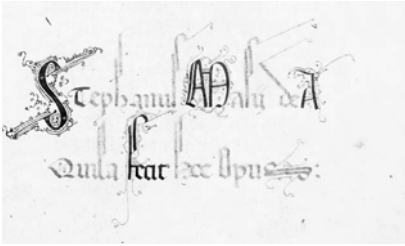 Stephanus de A
Quila fecit hoc Opus: